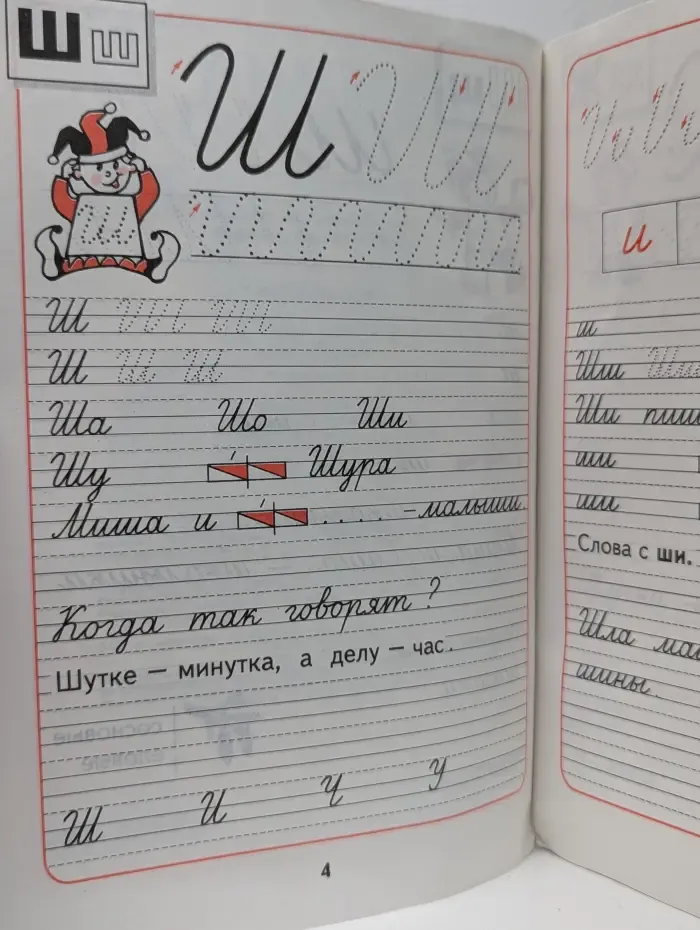 Ш ш
Ш Ш
Ш
Ш Ш Ш
Ш Ш Ш
Ша Шо Ши
Шу Шура
Миша и .... - малыши.
Когда так говорят?
Шутке — минутка, а делу — час.
Ш И Ч У
4
и
ш
Ши
Ши
ши
ши
Слова с ши.
Шла
шины.